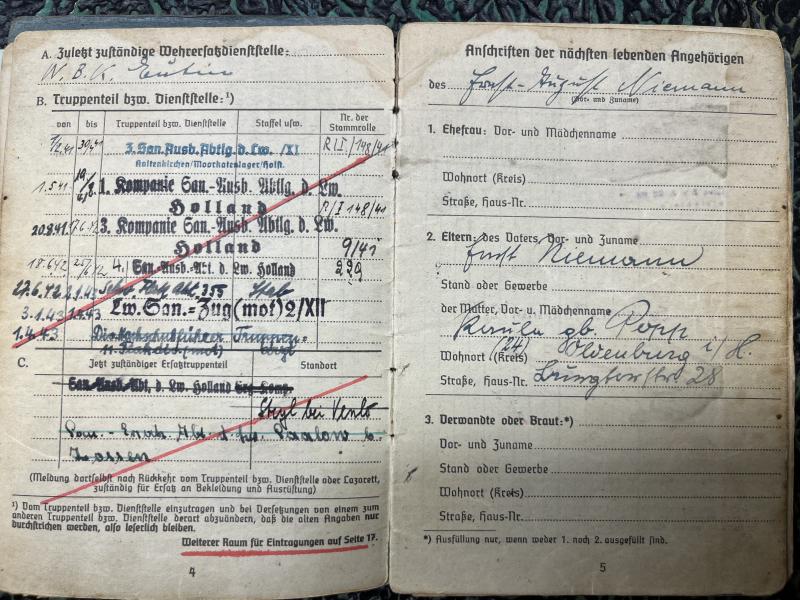 A. Zuletzt zuständige Wehrersatzdienststelle:
W. B. K. Eutin
B. Truppenteil bzw. Dienststelle:¹)
von bis Truppenteil bzw. Dienststelle Staffel usw. Nr. der Stammrolle
3. San. Ausb. Abtlg. d. Lw. /XI R I I/148/41
Kaltenkirchen/Moorkatenlager/Holst.
1.5.41 1. Kompanie San.-Ausb. Abtlg. d. Lw.
Holland R/I 148/41
20.8.41 3. Kompanie San.-Ausb. Abtlg. d. Lw.
Holland 9/41
18.6.42 4. San.-Ausb.-Abt. d. Lw. Holland 229
27.6.42 2.1.43 355 Stab
3.1.43 Lw. San.-Zug (mot) 2/XII
1.4.43
C. Jetzt zuständiger Ersatztruppenteil Standort
San. Ausb. Abt. d. Lw. Holland
Steyl bei Venlo
Zossen
(Meldung dortselbst nach Rückkehr vom Truppenteil bzw. Dienststelle oder Lazarett,
zuständig für Ersatz an Bekleidung und Ausrüstung)
¹) Vom Truppenteil bzw. Dienststelle einzutragen und bei Versetzungen von einem
zum anderen Truppenteil bzw. Dienststelle derart abzuändern, daß die alten Angaben nur
durchstrichen werden, also leserlich bleiben.
Weiterer Raum für Eintragungen auf Seite 17.
4
Anschriften der nächsten lebenden Angehörigen
des Ernst-August Niemann
(Vor- und Zuname)
1. Ehefrau: Vor- und Mädchenname
Wohnort (Kreis)
Straße, Haus-Nr.
2. Eltern: des Vaters, Vor- und Zuname
Ernst Niemann
Stand oder Gewerbe
der Mutter, Vor- u. Mädchenname
gb. Popp
Wohnort (Kreis) (24) Oldenburg i/H.
Straße, Haus-Nr. Burgtorstr 28
3. Verwandte oder Braut:*)
Vor- und Zuname
Stand oder Gewerbe
Wohnort (Kreis)
Straße, Haus-Nr.
*) Ausfüllung nur, wenn weder 1. noch 2. ausgefüllt sind.
5